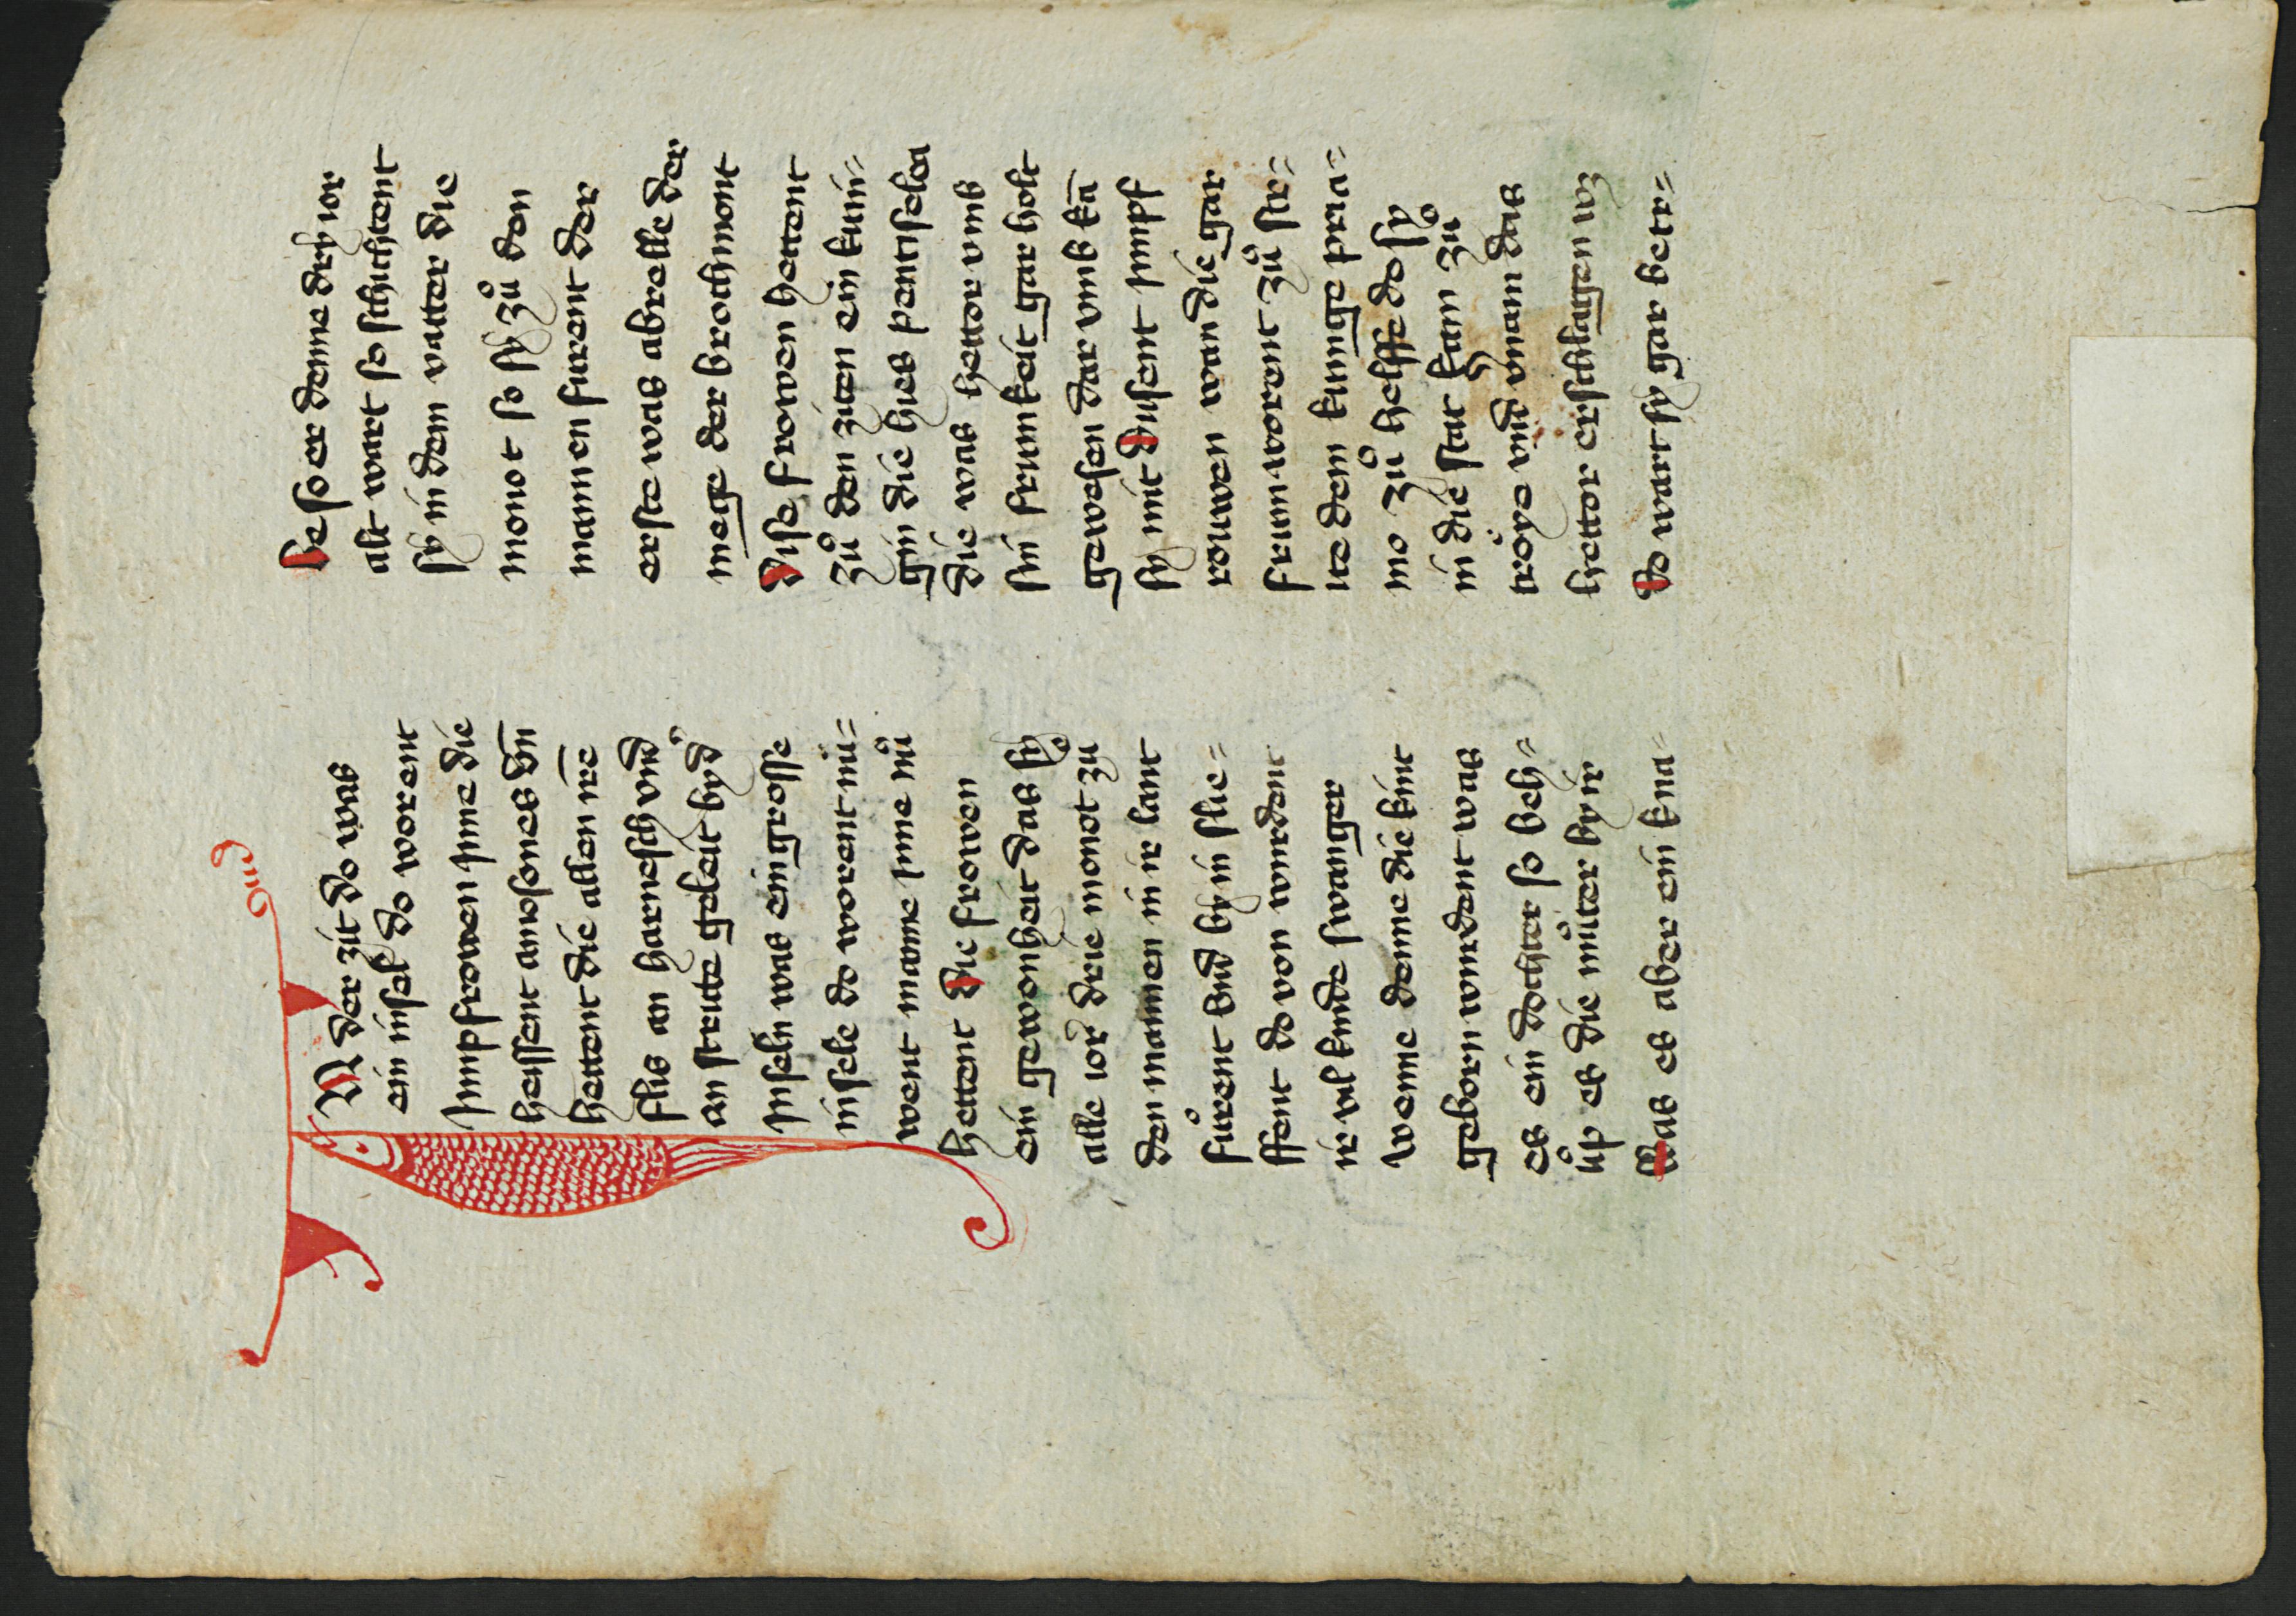 IN der zit do was
ein insel do worent
Jumpfrowen inne die
heissent amosones vn̄
hettent die allen ire
flis an harnesch vnd
an stritte geleit by d'
Inseln was ein grosse
insele do worent nü=
went manne inne nů
hettent Die frowen
ein gewonheit das sy
alle ior drie monot zů
den mannen in ir lant
fůrent vnd by in slie=
ffent do von wurdent
ir vil kinde swanger
wenne denne die kint
geborn wurdent was
es ein dochter so beh=
ůp es die můter by ir
Was es aber ein kna=
be so er denne dry ior
alt wart so schichtent
sy in dem vatter die
monot so sy zů den
mannen furent der
erste was abrelle der
mege der brochmont
Dise frowen hettent
zů den ziten ein kuni=
gin die hies pentiselea
die was hettor vmb
sin frumkeit gar holt
gewesen dar vmb kā
sy mit Dusent jumpf
rouwen wan die gar
frum worent zů str=
ite dem kunige pria=
mo zů helffe do sy
in die stat kam zů
tröye vnd vnam das
hettor erschlagen wz
Do wart sy gar betr=